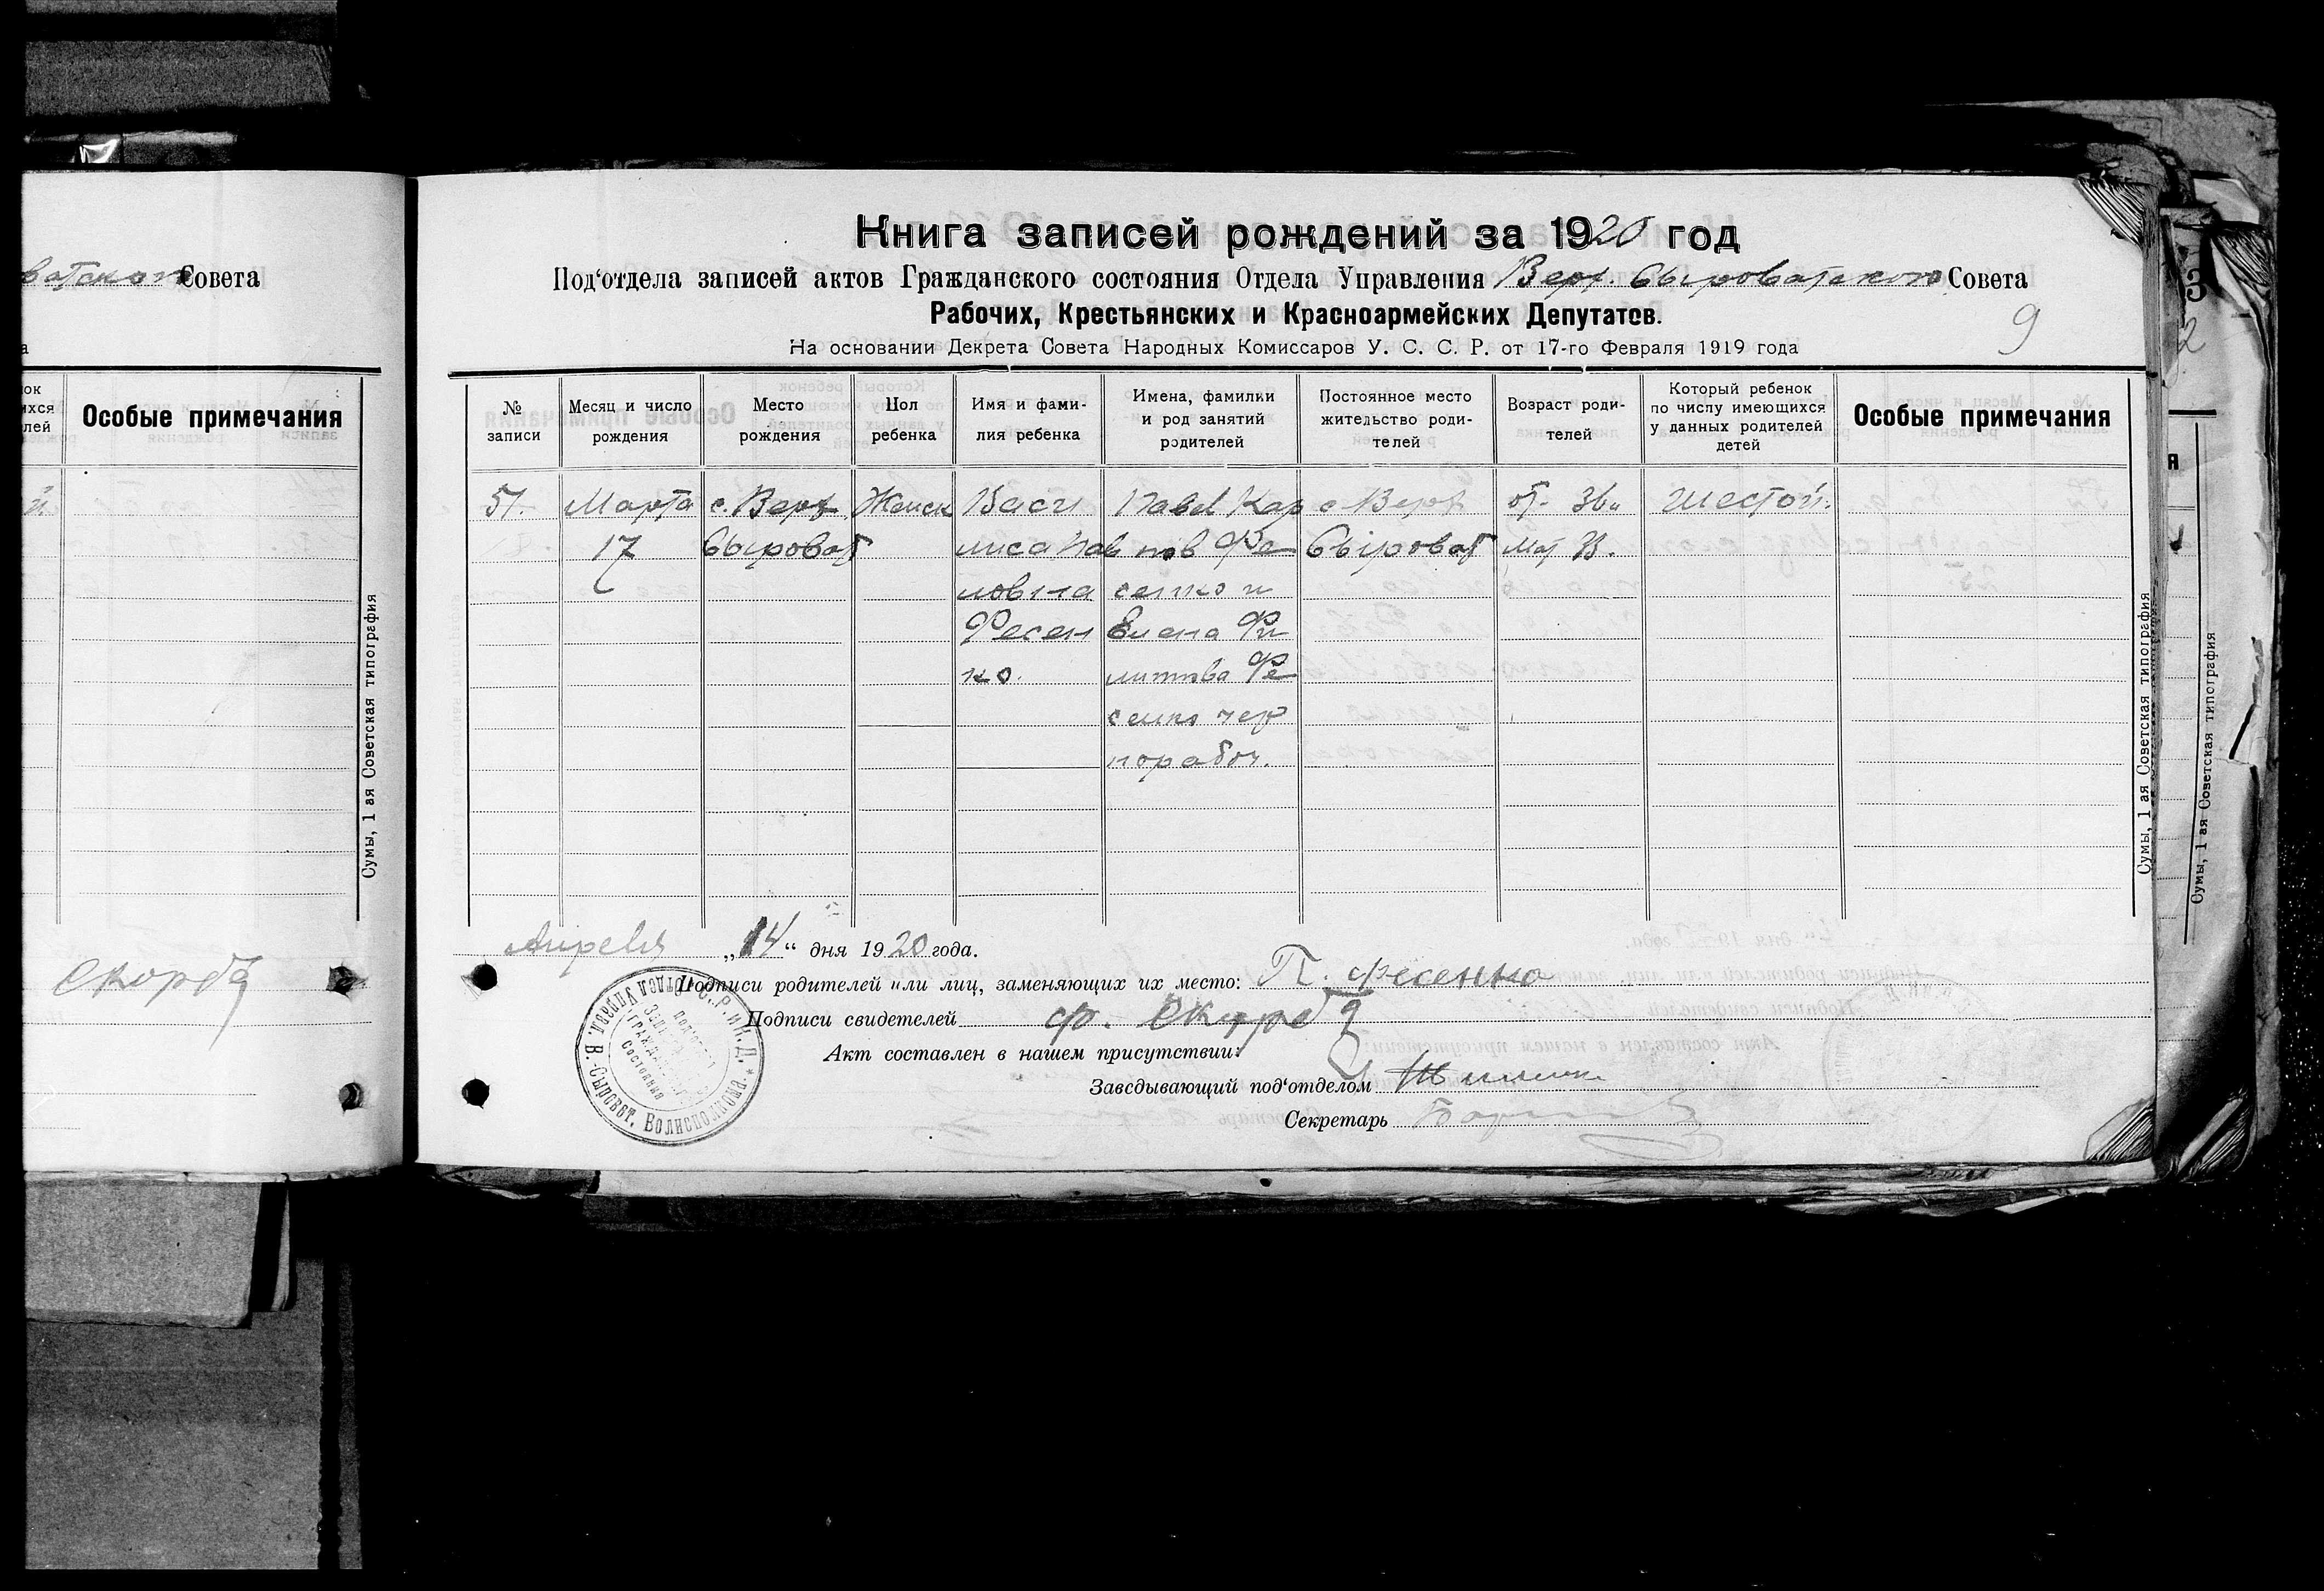 ватского Совета
Особые примечания
й
Скорба
Сумы, 1 ая Советская типография
Книга записей рождений за 1920 год
Под'отдела записей актов Гражданского состояния Отдела Управления Верх. Сыроватского Совета
Рабочих, Крестьянских и Красноармейских Депутатов.
9
На основании Декрета Совета Народных Комиссаров У. С. С. Р. от 17-го Февраля 1919 года
№ записи
Месяц и число рождения
Место рождения
Пол ребенка
Имя и фами-
лия ребенка
Имена, фамилии
и род занятий
родителей
Постоянное место
жительство роди-
телей
Возраст роди-
телей
Который ребенок
по числу имеющихся
у данных родителей
детей
Особые примечания
51.
Марта
17
с. Верх
Сыроват
Женск
Васи
лиса Пав
ловна
Фесен
ко.
Павел Кар
пов Фе
сенко и
Елена Фи
липпова Фе
сенко чер
норабоч.
с Верх
Сыроват
от. 36
мат 33.
Шестой.
Апреля „14“ дня 1920 года.
Подписи родителей или лиц, заменяющих их место: П. Фесенко
Подписи свидетелей Ф. Скорба
Акт составлен в нашем присутствии:
Заведывающий под'отделом
Секретарь
Отдел Управл. В.-Сыроват. Волисполкома.
Сумы, 1 ая Советская типография
3
2
Я
Сумы, 1 ая Советская типография